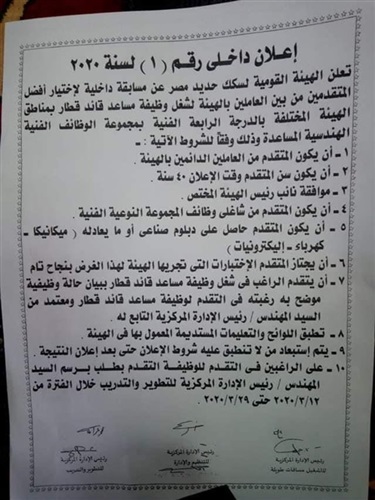 إعلان داخلى رقم ( ١ ) لسنة ٢٠٢٠
تعلن الهيئة القومية لسكك حديد مصر عن مسابقة داخلية لإختيار أفضل
المتقدمين من بين العاملين بالهيئة لشغل وظيفة مساعد قائد قطار بمناطق
الهيئة المختلفة بالدرجة الرابعة الفنية بمجموعة الوظائف الفنية
الهندسية المساعدة وذلك وفقاً للشروط الآتية : ـ
١ - أن يكون المتقدم من العاملين الدائمين بالهيئة .
٢ - أن يكون سن المتقدم وقت الإعلان ٤٠ سنة .
٣ - موافقة نائب رئيس الهيئة المختص .
٤ - أن يكون المتقدم من شاغلى وظائف المجموعة النوعية الفنية .
٥ - أن يكون المتقدم حاصل على دبلوم صناعى أو ما يعادله ( ميكانيكا -
كهرباء - إليكترونيات )
٦ - أن يجتاز المتقدم الإختبارات التى تجريها الهيئة لهذا الغرض بنجاح تام
٧ - أن يتقدم الراغب فى شغل وظيفة مساعد قائد قطار ببيان حالة وظيفية
موضح به رغبته فى التقدم لوظيفة مساعد قائد قطار ومعتمد من
السيد المهندس / رئيس الإدارة المركزية التابع له .
٨ - تطبق اللوائح والتعليمات المستديمة المعمول بها فى الهيئة .
٩ - يتم إستبعاد من لا تنطبق عليه شروط الإعلان حتى بعد إعلان النتيجة .
١٠ - على الراغبين فى التقدم للوظيفة التقدم بطلب برسم السيد
المهندس / رئيس الإدارة المركزية للتطوير والتدريب خلال الفترة من
٢٠٢٠/٣/١٢ حتى ٢٠٢٠/٣/٢٩ .
رئيس الإدارة المركزية رئيس الإدارة المركزية رئيس الإدارة المركزية
للتشغيل مسافات طويلة للتنظيم والإدارة للتطوير والتدريب